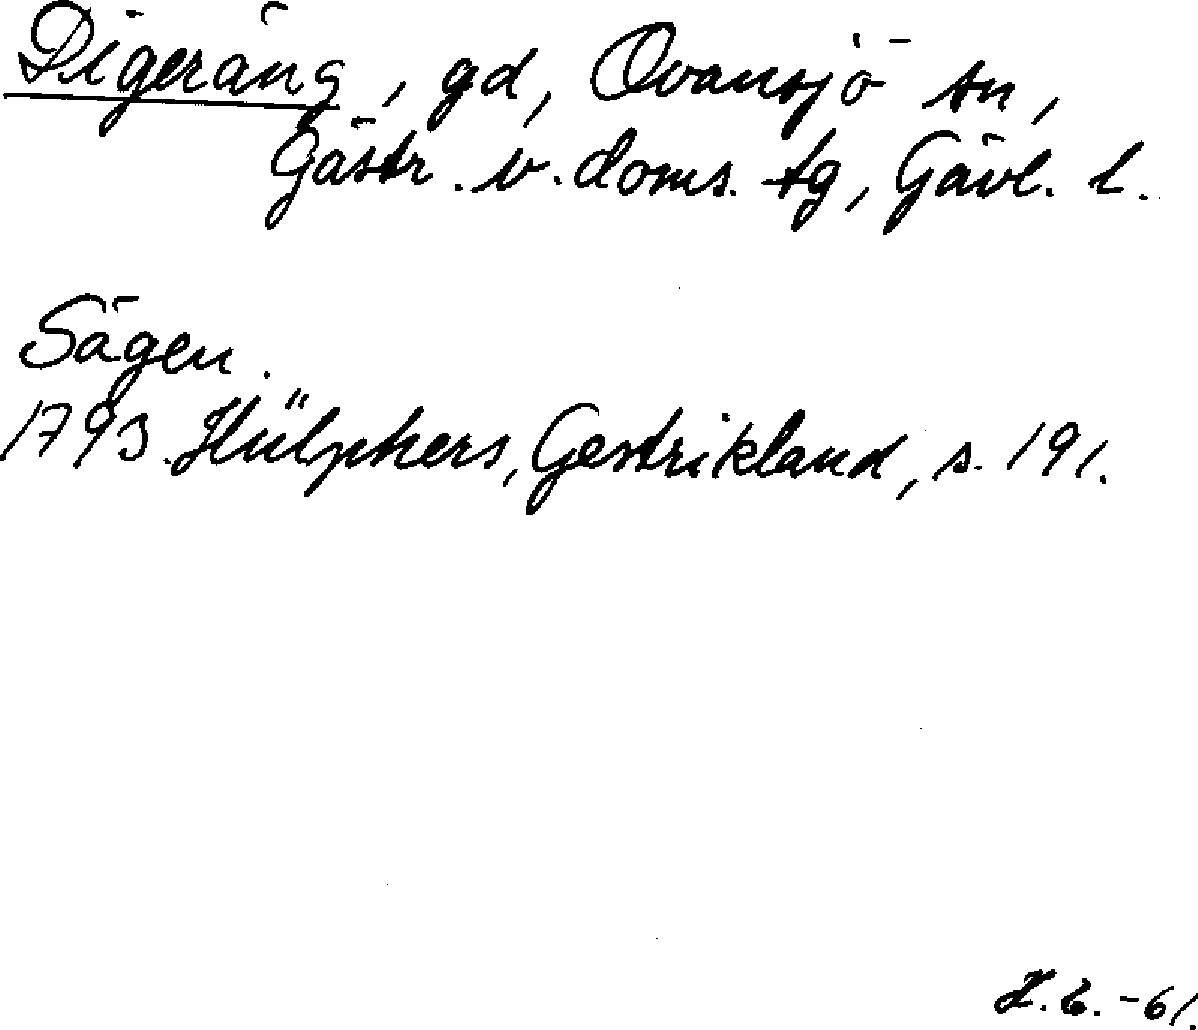 Digeräng, gd, Ovansjö sn,
Gästr. v. doms. tg, Gävl. l.
Sägen.
1793. Hülphers, Gestrikland, s. 191.
H. E. -61.